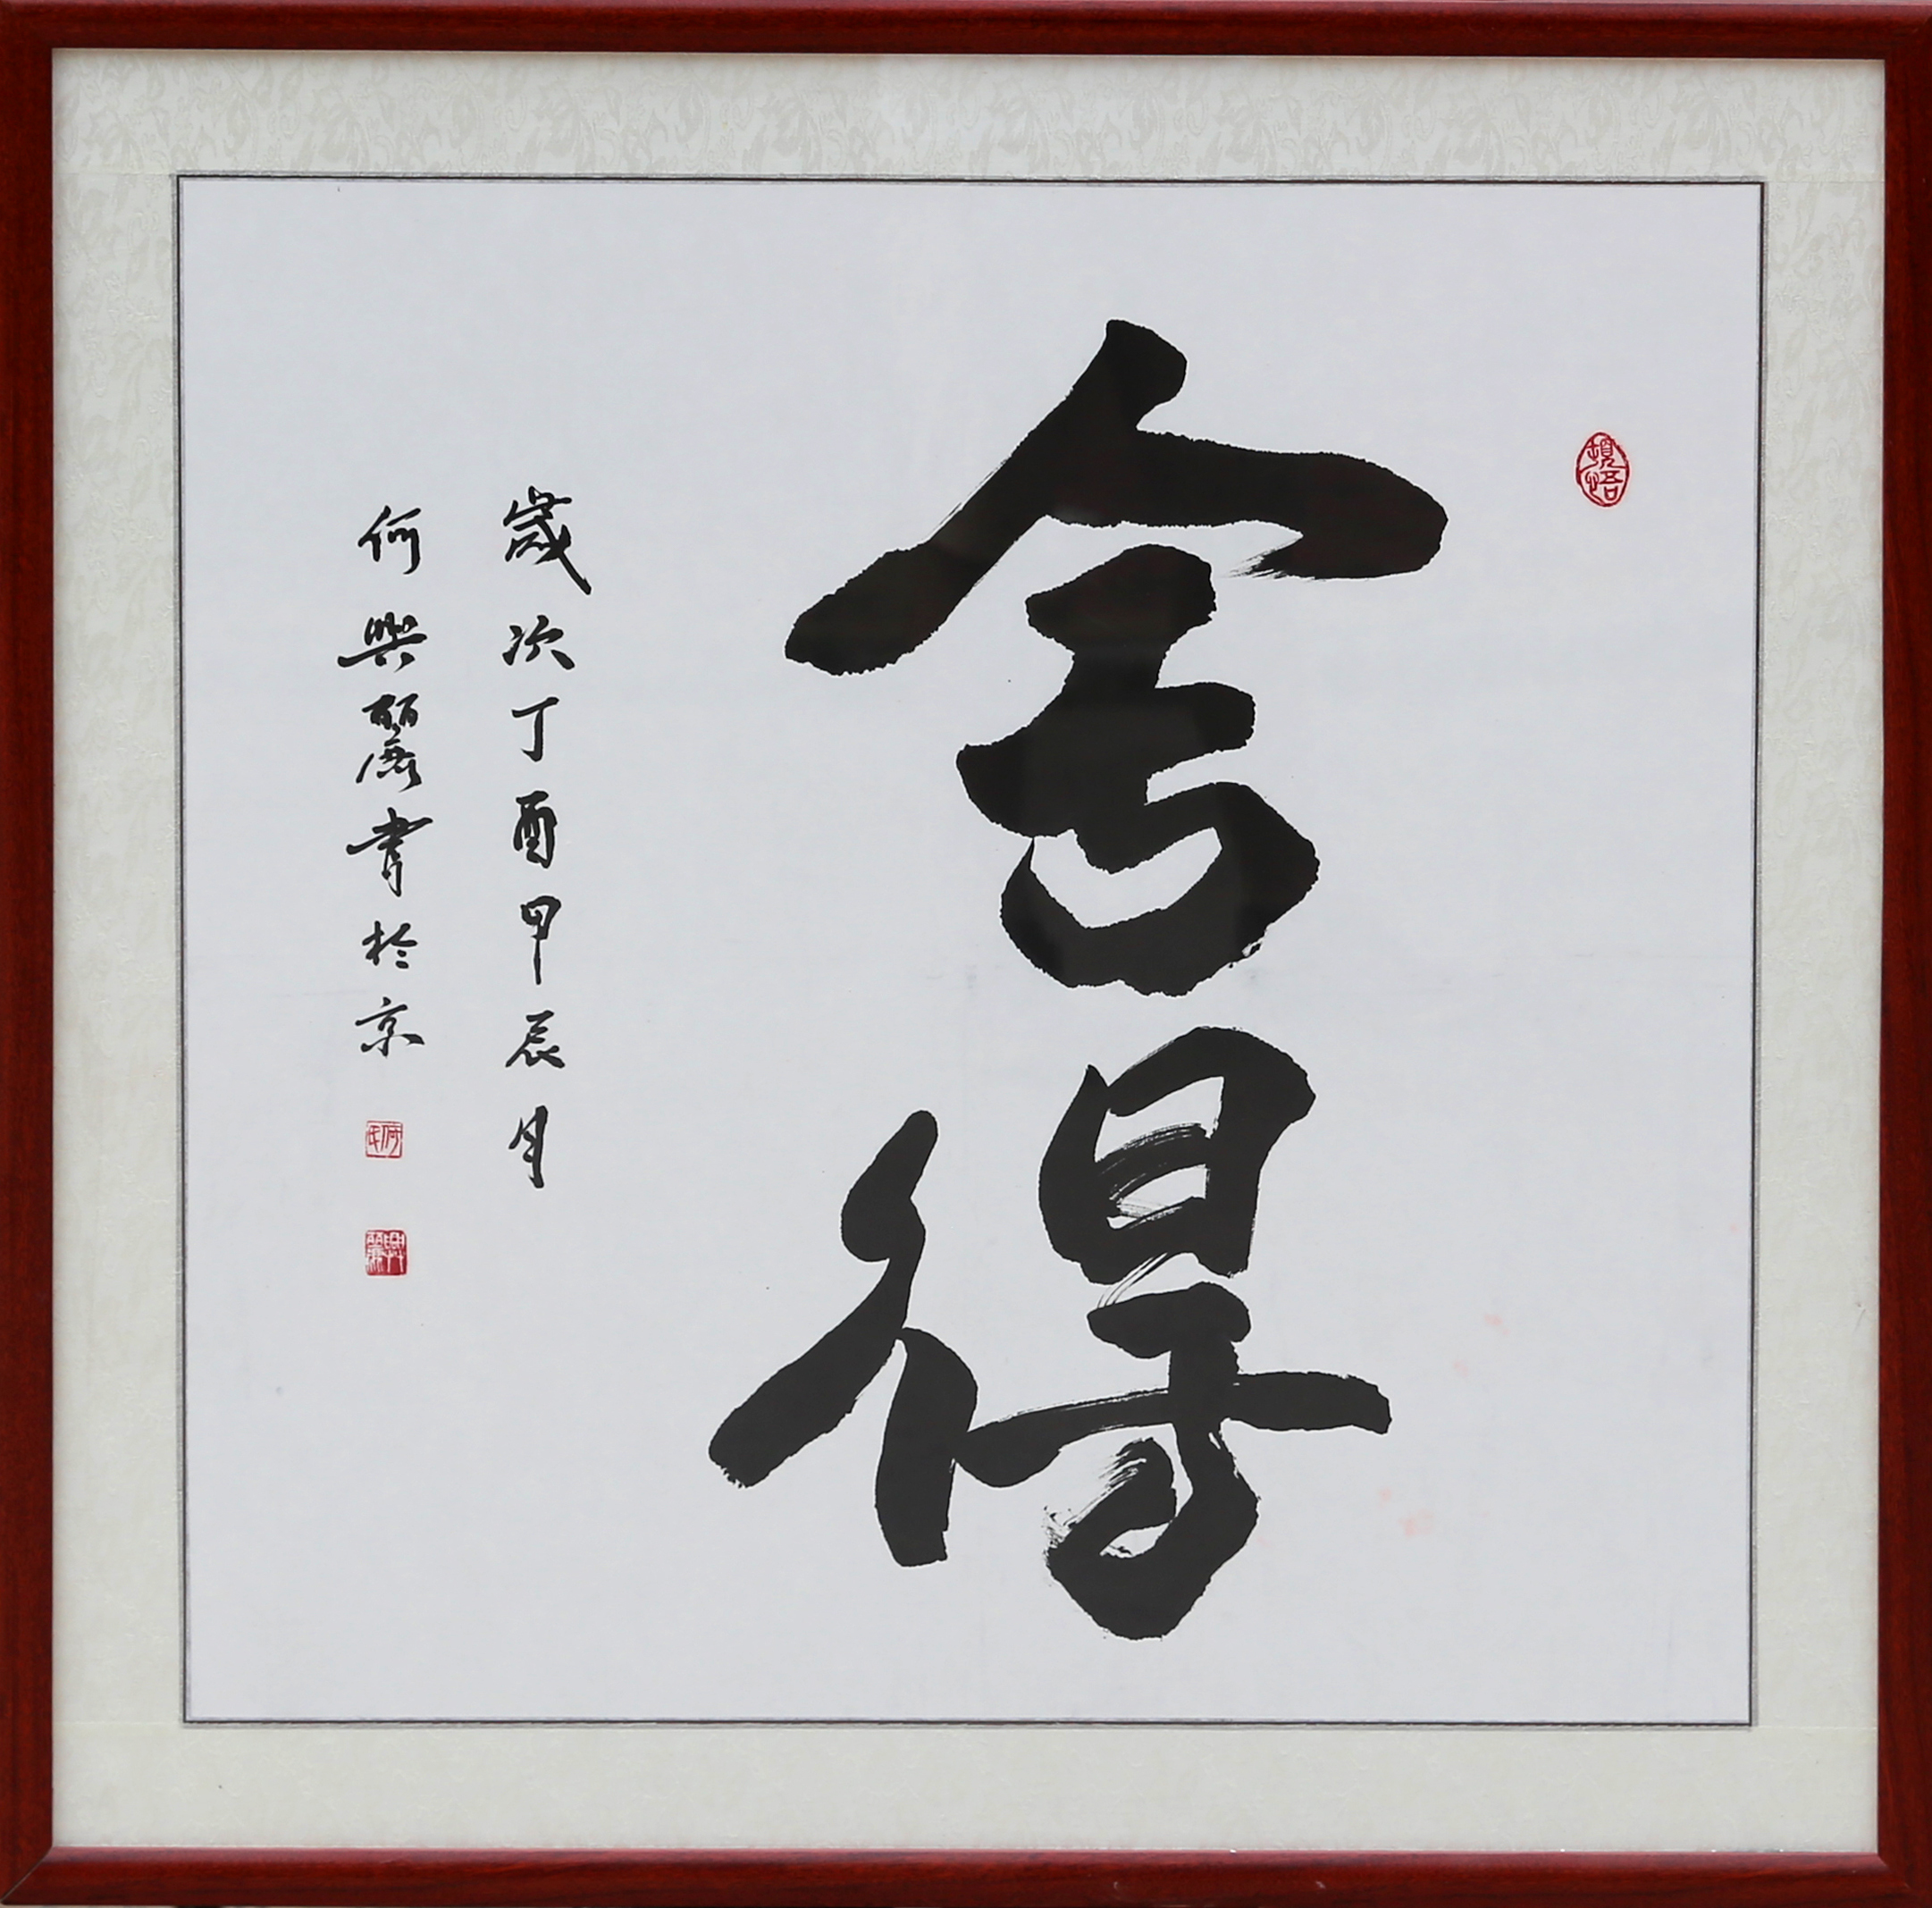 舍得
歲次丁酉甲辰月
何興麗書於京
頓悟
何氏
興麗